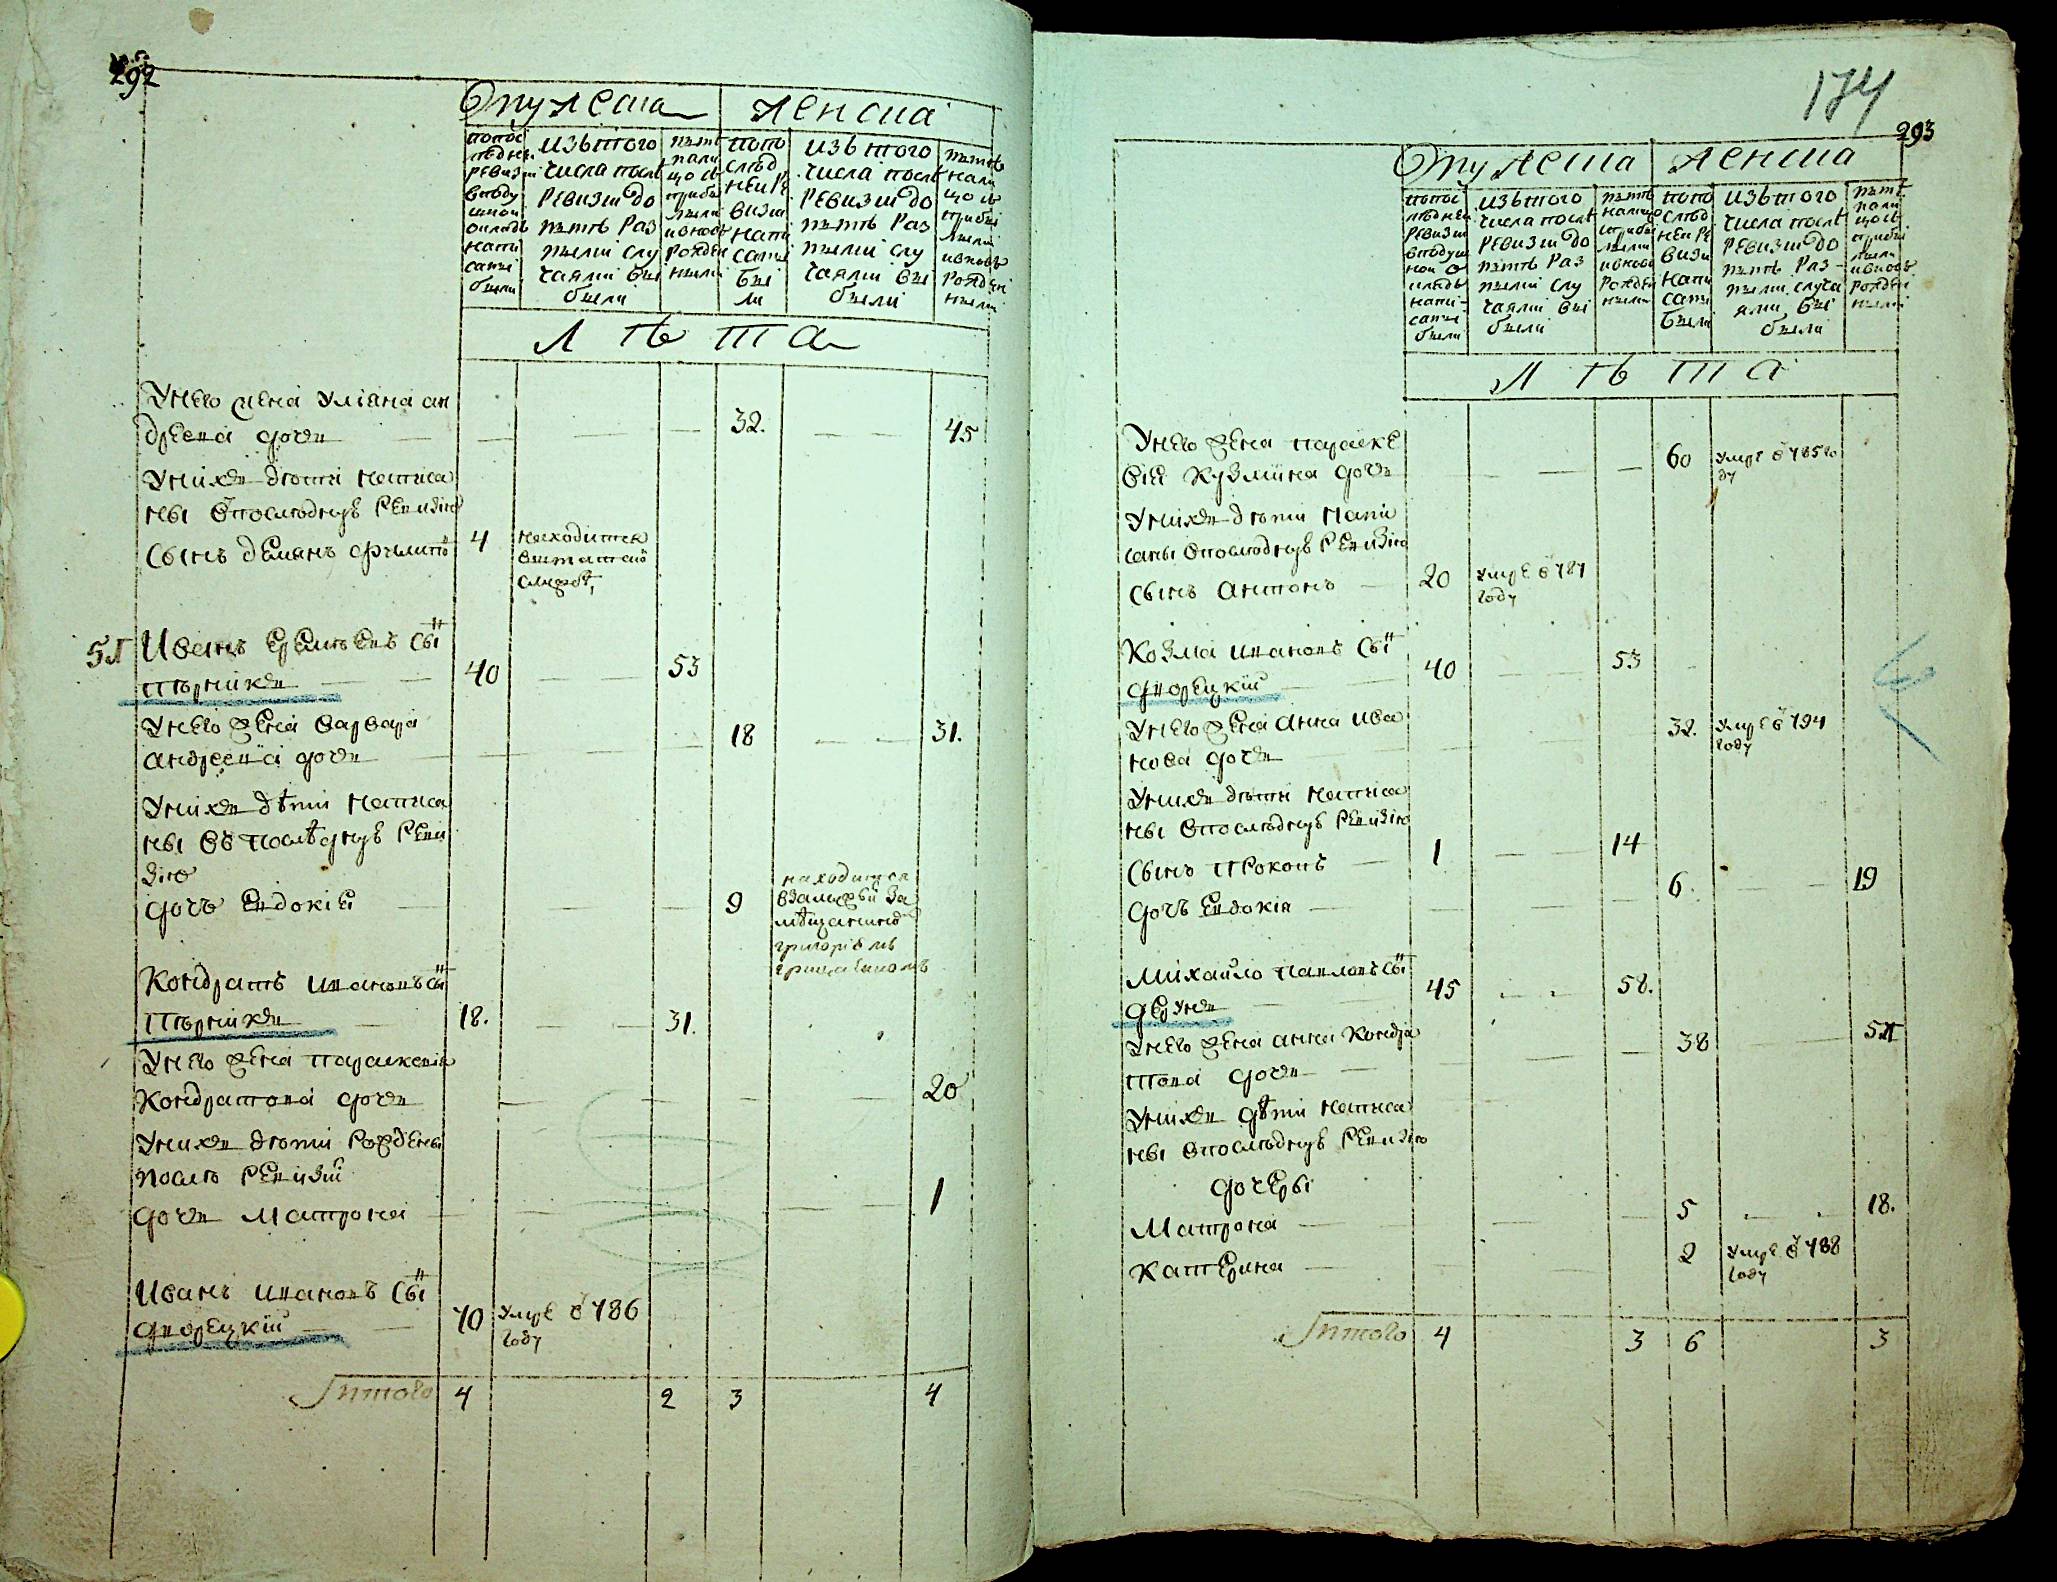 292
мужеска
женска
попос
лѣдней
ревизіи
вподу
шной
окладъ
напи
саны
были
изъ того
числа послѣ
ревизіи до
нынѣ раз
ными слу
чаями вы
были
нынѣ
нали
цо съ
прибы
лыми
ивновь
рожден
ными
попо
слѣд
ней ре
визіи
напи
саны
бы
ли
изъ того
числа послѣ
ревизіи до
нынѣ раз
ными слу
чаями вы
были
нынѣ
нали
цо съ
прибы
лыми
ивновь
рожден
ными
лѣта
Унего жена Уліяна ан
дреева дочь 32. 45
Униxъ дѣти написа
ны впослѣднуѣ ревизію
Сынъ Демянъ 4 находится
вштатной
службѣ
Иванъ Еремѣевъ сынъ
40 53
Унего жена Варвара
андреева дочь 18 31.
Унихъ дѣти написа
ны въ послѣднуѣ реви
зію
дочь Евдокія 9 находится
взамужьи за
мѣщаниномъ
григоріемъ
Кондратъ Ивановъ сынъ
18. 31.
Унего жена параскевія
Кондратова дочь 20
Унихъ дѣти рождены
послѣ ревизіи
дочь Матрона 1
Иванъ Ивановъ сынъ
дворецкій 70 умре в 786
году
Итого 4 2 3 4
174
293
мужеска
женска
попос
лѣдней
ревизіи
вподуш
ной о
кладъ
напи-
саны
были
изъ того
числа послѣ
ревизіи до
нынѣ раз
ными слу
чаями вы
были
нынѣ
налицо
съприбы
лыми
ивновь
рожден
ными
попо
слѣд
ней ре
визіи
напи
саны
были
изъ того
числа послѣ
ревизіи до
нынѣ раз-
ными случа
ями вы
были
нынѣ
нали
цо съ
прибы
лыми
ивновь
рожден
ными
лѣта
Унего жена параске
вія Кузмина дочь 60 умре в 785 го
ду
Унихъ дѣти напи
саны впослѣднуѣ ревизію
Сынъ антонъ 20 умре в 787
году
Козма Ивановъ сынъ
дворецкій 40 53
Унего жена анна ива
нова дочь 32. умре в 794
году
Унихъ дѣти написа
ны впослѣднуѣ ревизію
Сынъ Прокопъ 1 14
дочь Евдокія 6. 19
Михайло павловъ сынъ
45 58.
Унего жена анна Кондра
това дочь 38 51
Унихъ дѣти написа
ны впослѣднуѣ ревизію
дочеры
Матрона 5 18.
Катерина 2 умре в 788
году
Итого 4 3 6 3